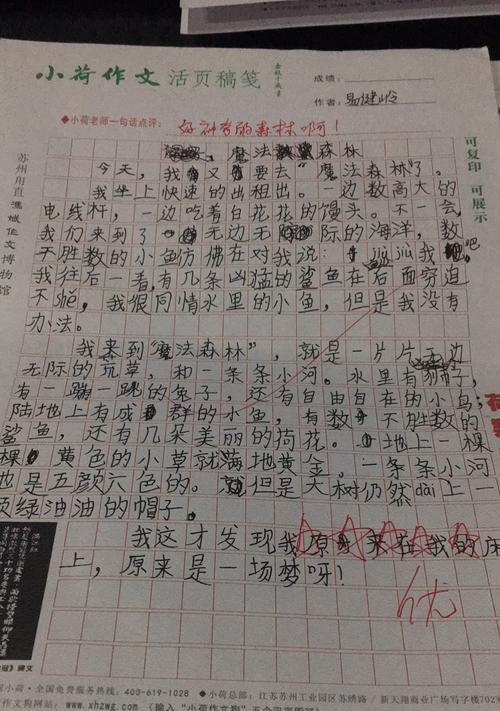 小荷作文 活页稿笺
成绩：
作者：
◆小荷老师一句话点评：
好神奇的森林啊！
魔法森林
今天，我又要去“魔法森林”了。
我坐上快速的出租出。一边数高大的
电线杆，一边吃着白花花的馒头。不一会
我们来到了无边无际的海洋，数
不胜数的小鱼仿佛在对我说：“jiù jiù我吧
我往后一看，有几条凶猛的鲨鱼在后面穷迫
不shě，我很同情水里的小鱼，但是我没有
办法。
我来到“魔法森林”，就是一片片无边
无际的玩草，和一条条小河。水里有狮子，
有一蹦一跳的兔子，还有自由自在的小鸟，
陆地上有成群的小鱼，有数不胜数的
鲨鱼，还有几朵美丽的荷花。地上一棵
棵黄色的小草就满地黄金，一条条小河
也是五颜六色的。但是大树仍然dài上一
顶绿油油的帽子。
我这才发现我原来在我的床
上，原来是一场梦呀！
优
可复印 可展示
苏州甪直 澹城作文博物馆
小荷·全国免费服务电话：400-619-1028 ◆小荷总部：江苏苏州工业园区苏绣路/新天翔商业广场写字楼702
作文狗网站：www.xhzwg.com （输入“小荷作文狗”五个汉字即可）